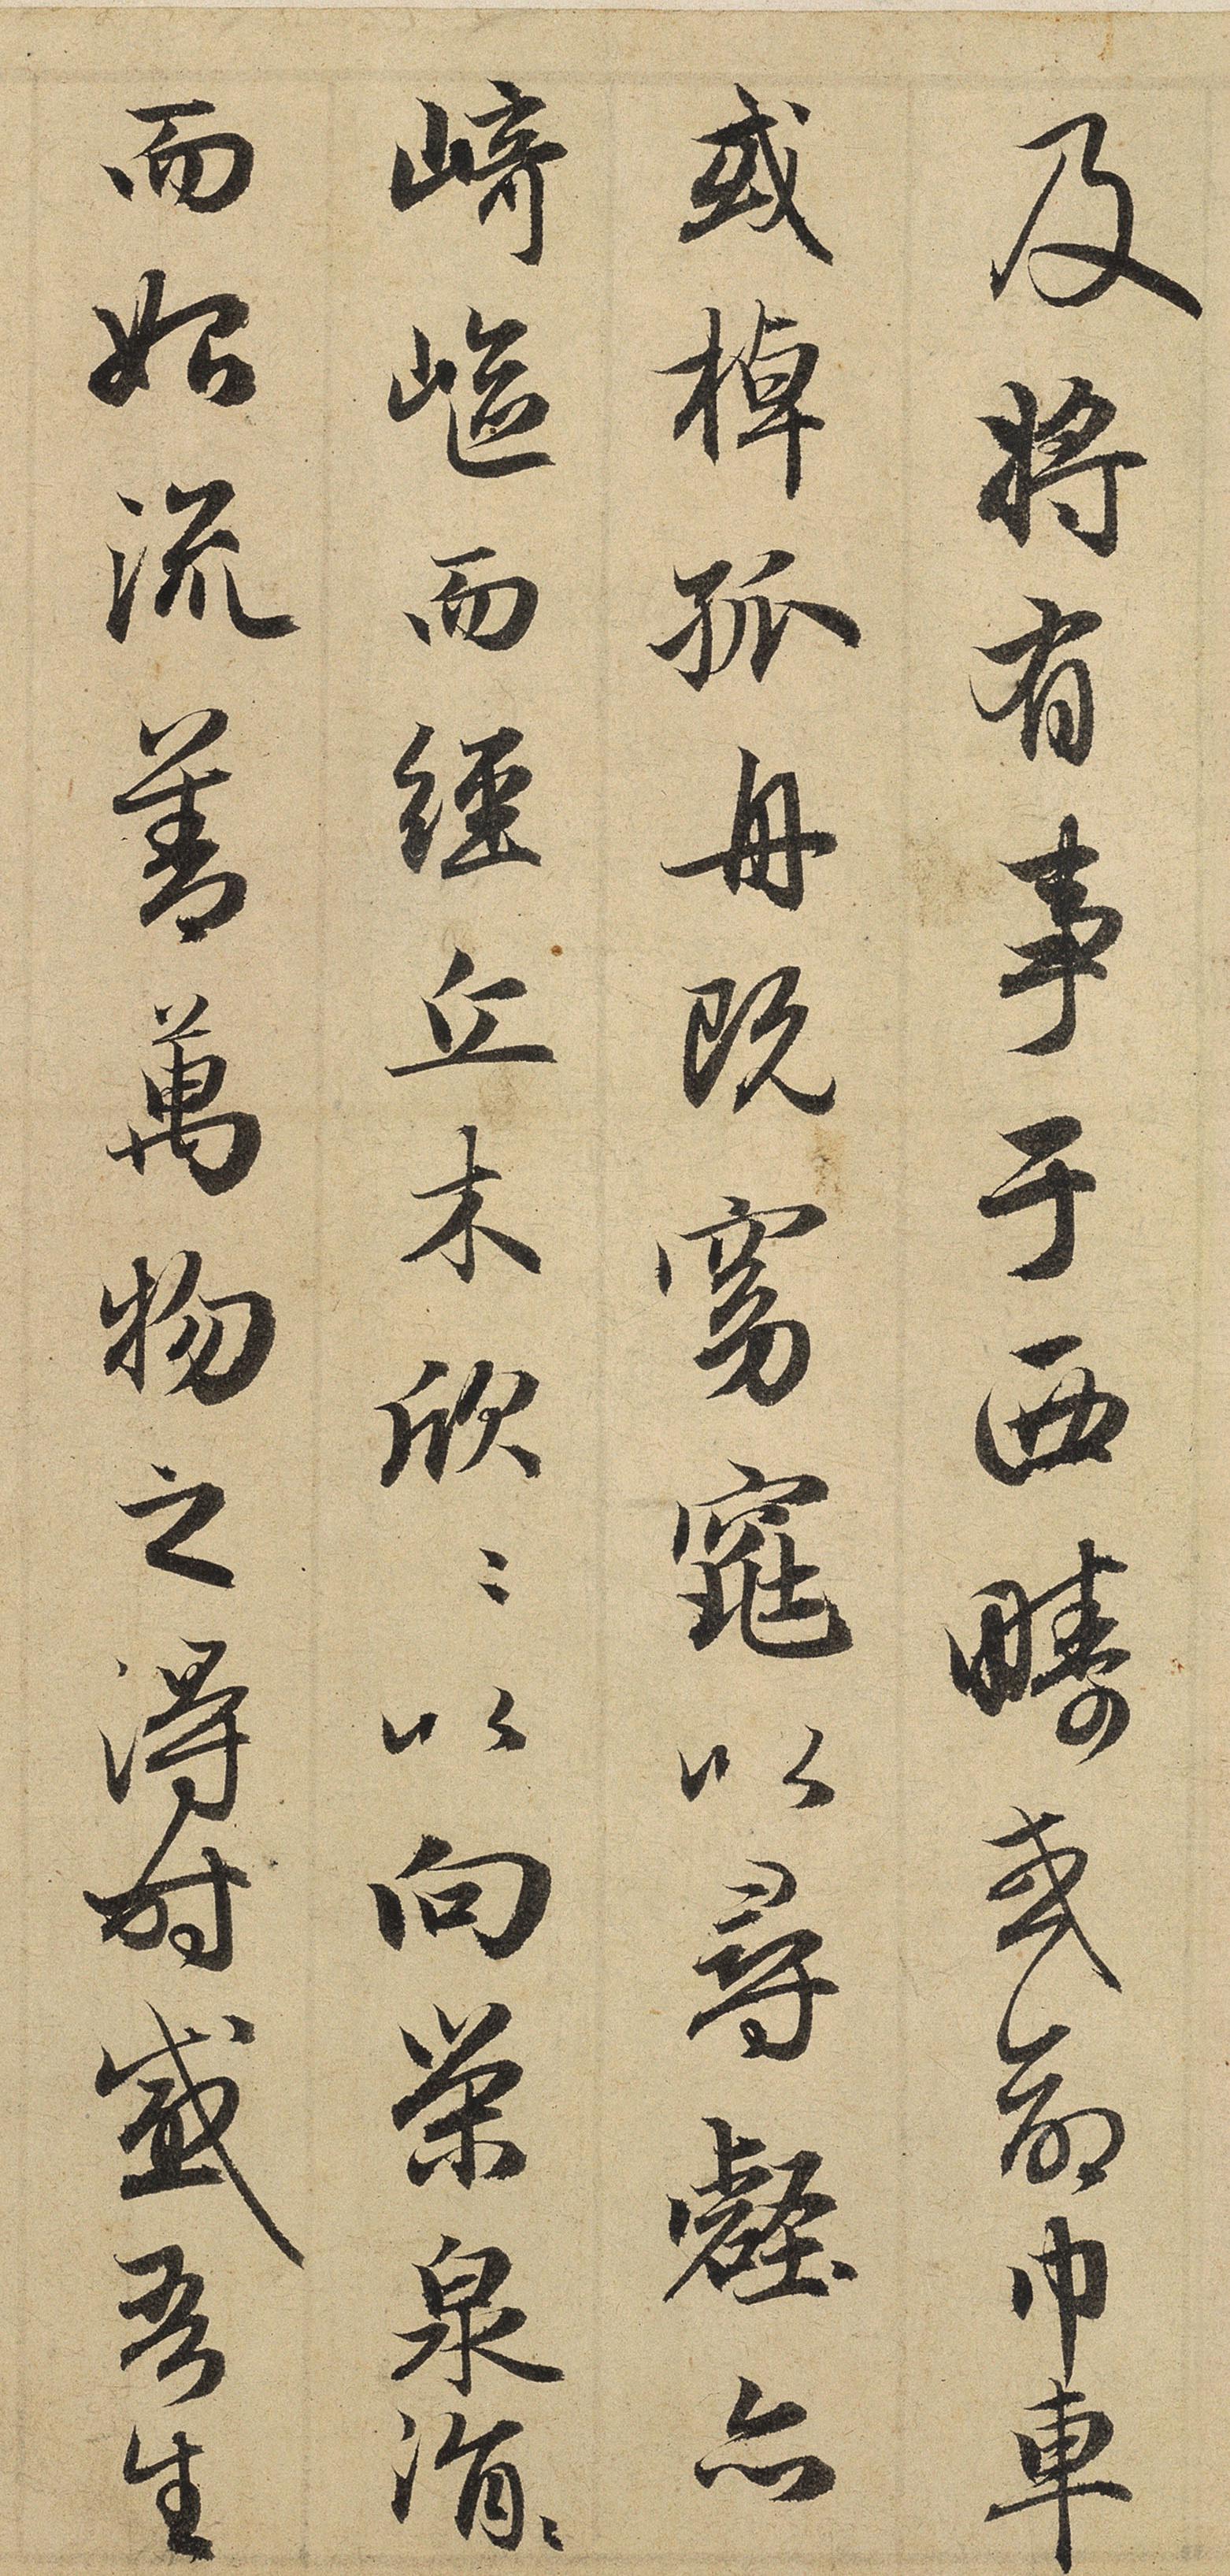 及將有事于西疇或命巾車
或棹孤舟既窈窕以尋壑亦
崎嶇而經丘木欣〻以向榮泉涓〻
而始流善萬物之得時感吾生